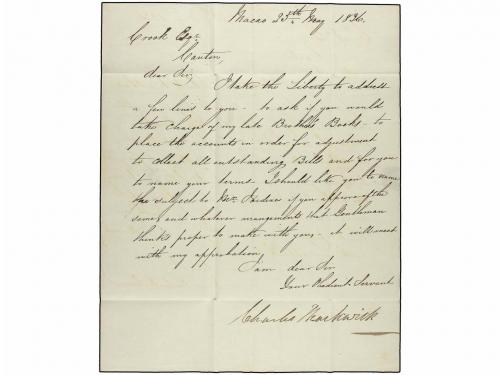 Macao 25th May 1836.
Crook Esqr
Canton,
dear Sir,
I take the Liberty to address
a few lines to you - to ask if you would
take Charge of my late Brothers Books - to
place the accounts in order for adjustment
to Collect all outstanding Bills and for you
to name your terms. I should like you to name
the subject to Mr. if you approve of the
same, and whatever arangements that Gentleman
thinks proper to make with you, - it will meet
with my approbation,
I am dear Sir
Your Obedient Servant
Charles Markwick